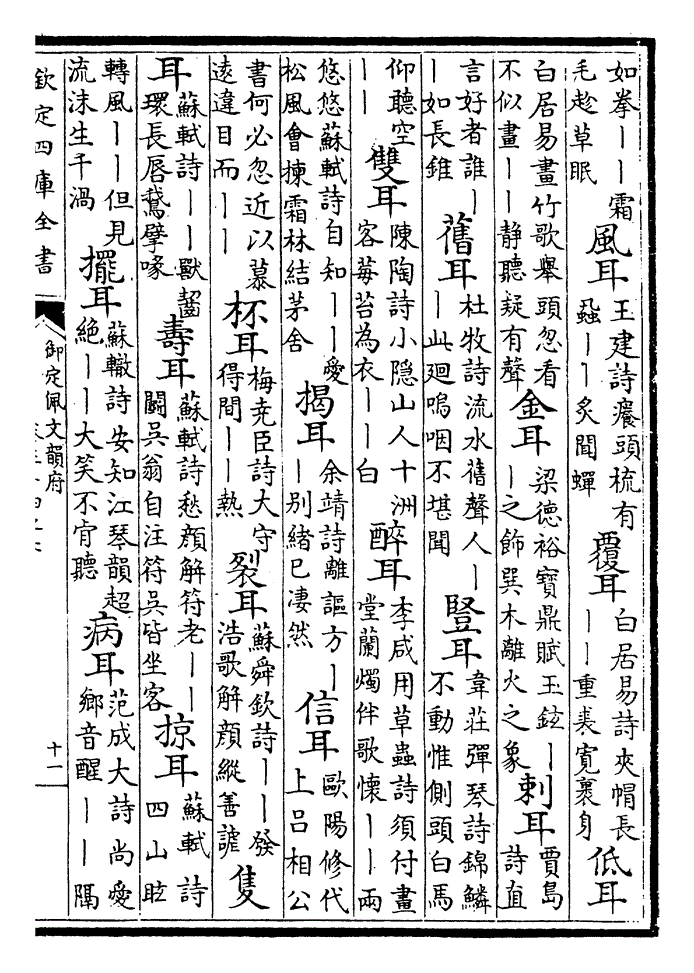 如拳丨丨霜
毛趁草眠
風耳
王建詩癢頭梳有
蝨丨丨炙聞蟬
覆耳
白居易詩夾帽長
丨丨重裘寛裹身
低耳
白居易畫竹歌舉頭忽看
不似畫丨丨静聽疑有聲
金耳
梁德裕寶鼎賦玉鉉丨
丨之飾巽木離火之象
刺耳
賈島
詩直
言好者誰丨
丨如長錐
舊耳
杜牧詩流水舊聲人丨
丨此廻嗚咽不堪聞
豎耳
韋莊彈琴詩錦鱗
不動惟側頭白馬
仰聽空
丨丨
雙耳
陳陶詩小隠山人十洲
客莓苔為衣丨丨白
醉耳
李咸用草蟲詩須付畫
堂蘭燭伴歌懷丨丨兩
悠悠蘇軾詩自知丨丨愛
松風會揀霜林結茅舍
揭耳
余靖詩離謳方丨
丨别緒已凄然
信耳
歐陽修代
上吕相公
書何必忽近以慕
遠違目而丨丨
杯耳
梅尭臣詩大守
得間丨丨熱
裂耳
蘇舜欽詩丨丨發
浩歌解顔縱善謔
隻
耳
蘇軾詩丨丨獸齧
環長唇鵞擘喙
壽耳
蘇軾詩愁顔解符老丨丨
鬭吳翁自注符吳皆坐客
掠耳
蘇軾詩
四山眩
轉風丨丨但見
流沫生千渦
擺耳
蘇轍詩安知江琴韻超
絶丨丨大笑不肯聽
病耳
范成大詩尚愛
鄉音醒丨丨隔
欽定四庫全書
御定佩文韻府
十一